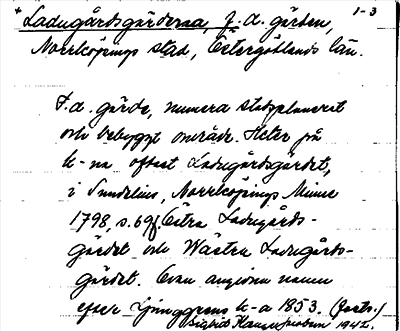 * Ladugårdsgärdena, f.d. gärden, 1-3
Norrköpings stad, Östergötlands län.
F.d. gärde, numera stadsplanerat
och bebyggt område. Heter på
k-na oftast Ladugårdsgärdet,
i Sundelius, Norrköpings Minne
1798, s. 69f. Östra Ladugårds-
gärdet och Wästra Ladugårds-
gärdet. Ovan angivna namn
efter Ljunggrens k-a 1853. (Forts.)
1942.